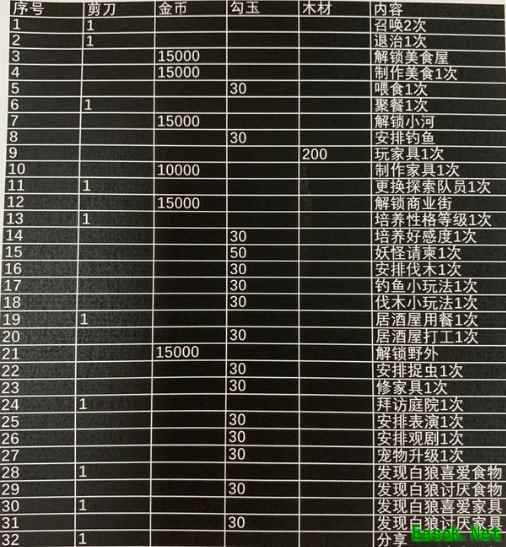 序号 剪刀 金币 勾玉 木材 内容
1 1 召唤2次
2 1 退治1次
3 15000 解锁美食屋
4 15000 制作美食1次
5 30 喂食1次
6 1 聚餐1次
7 15000 解锁小河
8 30 安排钓鱼
9 200 玩家具1次
10 10000 制作家具1次
11 1 更换探索队员1次
12 15000 解锁商业街
13 1 培养性格等级1次
14 30 培养好感度1次
15 50 妖怪请柬1次
16 30 安排伐木1次
17 30 钓鱼小玩法1次
18 30 伐木小玩法1次
19 1 居酒屋用餐1次
20 30 居酒屋打工1次
21 15000 解锁野外
22 30 安排捉虫1次
23 30 修家具1次
24 1 拜访庭院1次
25 30 安排表演1次
26 30 安排观剧1次
27 30 宠物升级1次
28 1 发现白狼喜爱食物
29 30 发现白狼讨厌食物
30 1 发现白狼喜爱家具
31 30 发现白狼讨厌家具
32 1 分享